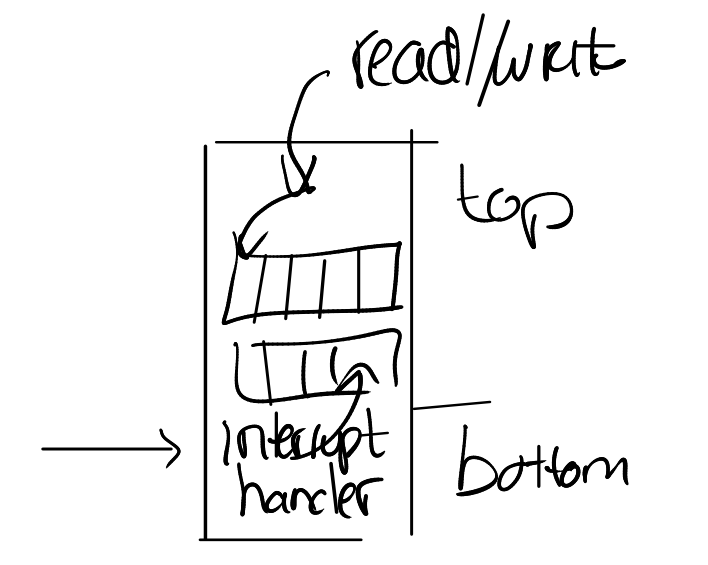 read/write
top
interrupt
handler
bottom